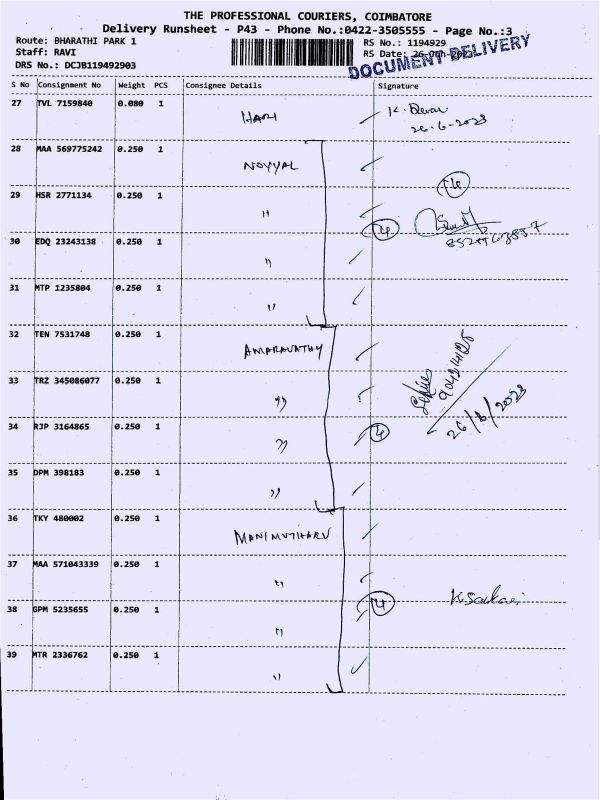 THE PROFESSIONAL COURIERS, COIMBATORE
Delivery Runsheet - P43 - Phone No.:0422-3505555 - Page No.:3
Route: BHARATHI PARK 1
RS No.: 1194929
Staff: RAVI
RS Date: 26-Jun-2023
DRS No.: DCJB119492903
DOCUMENT DELIVERY
S No Consignment No Weight PCS Consignee Details Signature
27 TVL 7159840 0.080 1 HARI
26-6-2023
28 MAA 569775242 0.250 1 NOYYAL
4
29 HSR 2771134 0.250 1 "
4
30 EDQ 23243138 0.250 1 "
31 MTP 1235804 0.250 1 "
32 TEN 7531748 0.250 1 AMARAVATHY
33 TRZ 345086077 0.250 1 "
26/6/2023
34 RJP 3164865 0.250 1 " 4
35 DPM 398183 0.250 1 "
36 TKY 480002 0.250 1 MANIMUTHARU
37 MAA 571043339 0.250 1 "
38 GPM 5235655 0.250 1 " 4
39 MTR 2336762 0.250 1 "